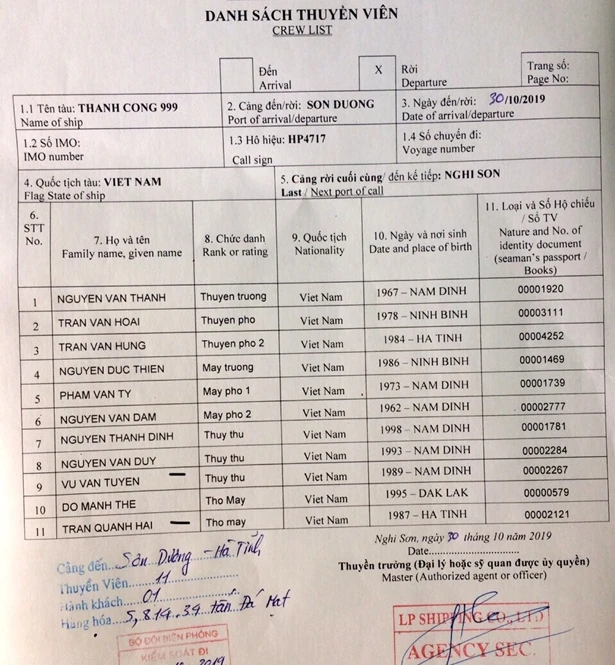 DANH SÁCH THUYỀN VIÊN
CREW LIST
Đến
Arrival
X
Rời
Departure
Trang số:
Page No:
1.1 Tên tàu: THANH CONG 999
Name of ship
2. Cảng đến/rời: SON DUONG
Port of arrival/departure
3. Ngày đến/rời: 30/10/2019
Date of arrival/departure
1.2 Số IMO:
IMO number
1.3 Hô hiệu: HP4717
Call sign
1.4 Số chuyến đi:
Voyage number
4. Quốc tịch tàu: VIET NAM
Flag State of ship
5. Cảng rời cuối cùng/ đến kế tiếp: NGHI SON
Last / Next port of call
6.
STT
No.
7. Họ và tên
Family name, given name
8. Chức danh
Rank or rating
9. Quốc tịch
Nationality
10. Ngày và nơi sinh
Date and place of birth
11. Loại và Số Hộ chiếu
/ Số TV
Nature and No. of
identity document
(seaman's passport /
Books)
1 NGUYEN VAN THANH Thuyen truong Viet Nam 1967 – NAM DINH 00001920
2 TRAN VAN HOAI Thuyen pho Viet Nam 1978 – NINH BINH 00003111
3 TRAN VAN HUNG Thuyen pho 2 Viet Nam 1984 – HA TINH 00004252
4 NGUYEN DUC THIEN May truong Viet Nam 1986 – NINH BINH 00001469
5 PHAM VAN TY May pho 1 Viet Nam 1973 – NAM DINH 00001739
6 NGUYEN VAN DAM May pho 2 Viet Nam 1962 – NAM DINH 00002777
7 NGUYEN THANH DINH Thuy thu Viet Nam 1998 – NAM DINH 00001781
8 NGUYEN VAN DUY Thuy thu Viet Nam 1993 – NAM DINH 00002284
9 VU VAN TUYEN Thuy thu Viet Nam 1989 – NAM DINH 00002267
10 DO MANH THE Tho May Viet Nam 1995 – DAK LAK 00000579
11 TRAN QUANH HAI Tho may Viet Nam 1987 – HA TINH 00002121
Nghi Sơn, ngày 30 tháng 10 năm 2019
Date..........................
Thuyền trưởng (Đại lý hoặc sỹ quan được ủy quyền)
Master (Authorized agent or officer)
Cảng đến... Sơn Dương - Hà Tĩnh
Thuyền Viên... 11
Hành khách... 01
Hàng hóa... 5,814.39 tấn Đá Mạt
BỘ ĐỘI BIÊN PHÒNG
KIỂM SOÁT ĐI
2019
LP SHIPPING CO., LTD
AGENCY SEC.